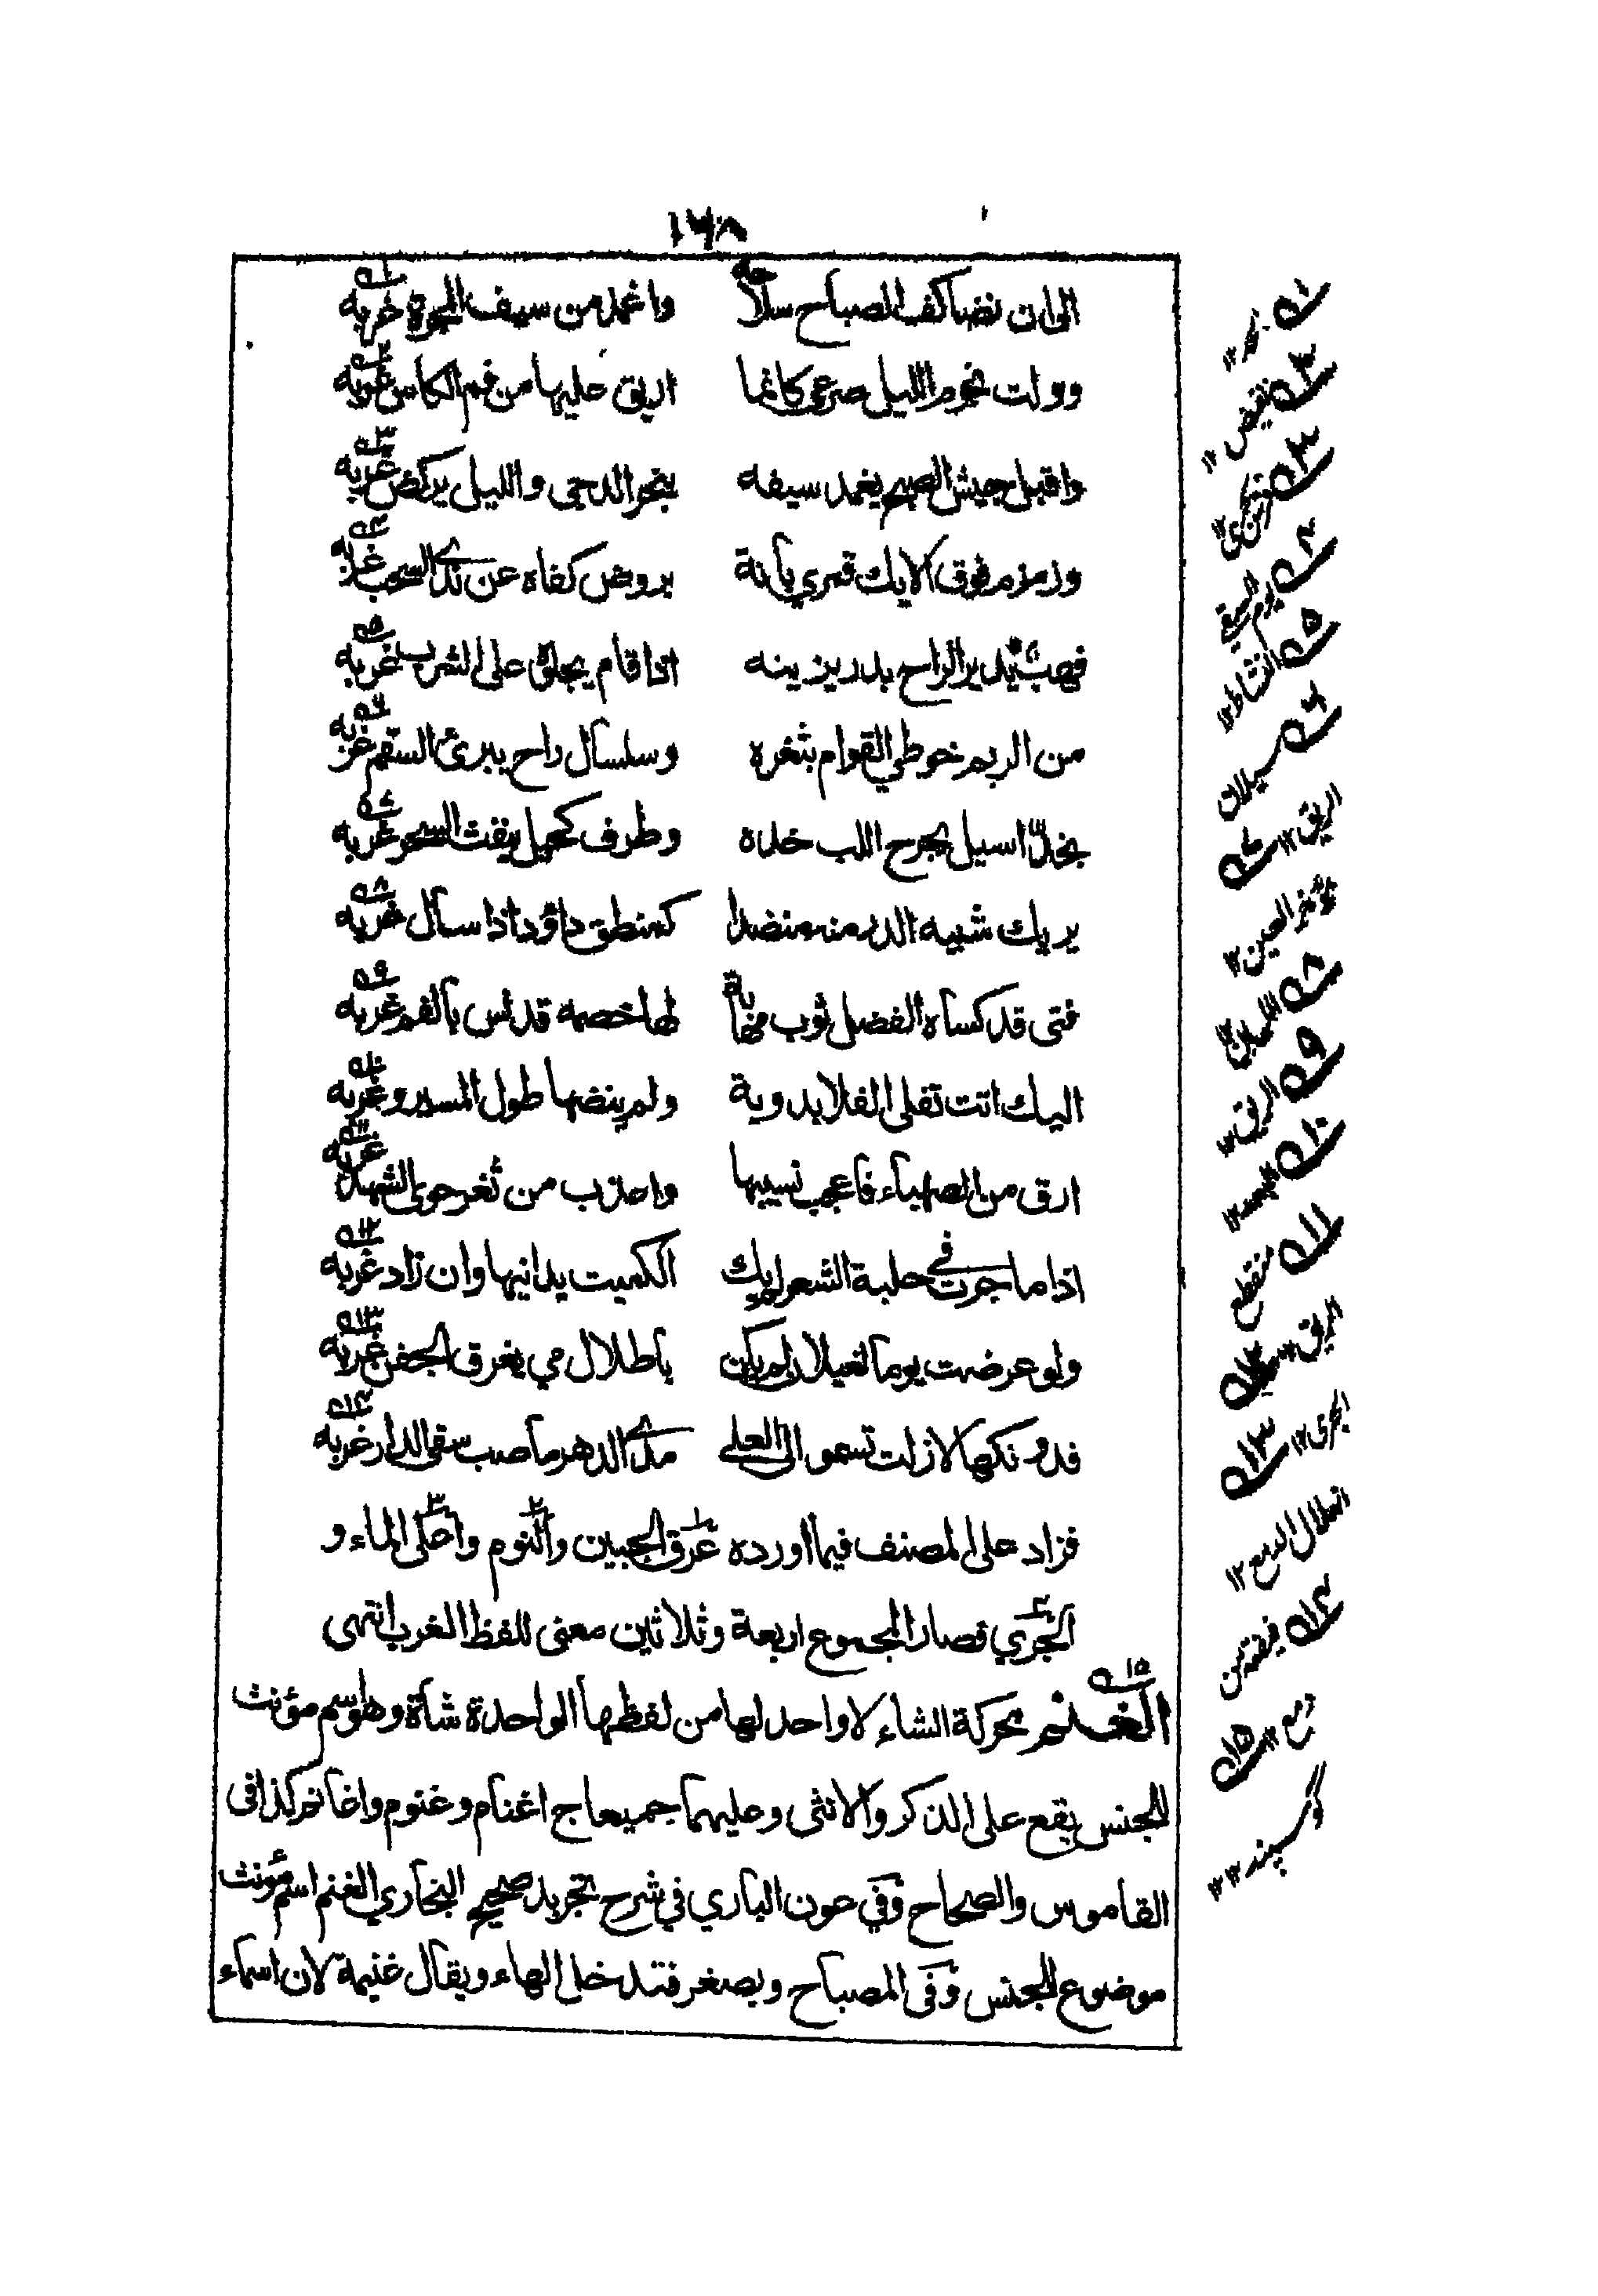 ١٦٨
الى ان نضا كف الصباح سلاحه واغمد من سيف المجرة غربه
وولت نجوم الليل صرعى كانما اريق عليها من فم الكاس غربه
واقبل جيش الصبح يغمد سيفه بنحر الدجى والليل يركض غربه
وزمزم فوق الايك قمري بانة بروض كفاه عن ندى السحب غربه
فهب يدير الراح بدر يزينه اذا قام يجلو على الشرب غربه
من الريم خوطي القوام بثغره وسلسال راح يبرئ السقم غربه
بخد اسيل يجرح اللب خده وطرف كحيل ينفث السحر غربه
يريك شبيه الدر منه منضدا كمنطق داؤد اذا سال غربه
فتى قد كساه الفضل ثوب مهابة لها خصمه قد لس بالفم غربه
اليك اتت تفلى الفلا بدوية ولم ينضها طول المسير وغربه
ارق من الصهباء فاعجب نسيبها واعذب من ثغر حوى الشهد غربه
اذا ما جرت في حلبة الشعر لم يك الكميت يدانيها وان زاد غربه
ولو عرضت يوما لغيلان لم يكن باطلال مي يغرق الجفن غربه
فدونكها لا زلت تسمو الى العلے مدى الدهر ما صب سقى الدار غربه
فزاد على المصنف فيما اورده عرق الجبين والنوم واعلى الماء و
الجري فصار المجموع اربعة وثلاثين معنى للفظ الغرب انتهى
الغنم محركة الشاء لا واحد لها من لفظها الواحدة شاة وهو اسم مؤنث
للجنس يقع على الذكر والانثى وعليهما جميعا ج اغنام وغنوم واغانم كذا فى
القاموس والصحاح وفي عون الباري في شرح تجريد صحيح البخاري الغنم اسم مؤنث
موضوع للجنس وفى المصباح ويصغر فتدخل الهاء ويقال غنيمة لان اسماء
١
٢
٣
٤ يوم السقي
٥ النشاط ١٢
٦ سيلان
الريق ١٢
٧
مؤخر العين ١٢
٨
٩ الريق ١٢
١٠
١١ منقطع
الريق ١٢
١٢
الجرى ١٢
١٣
انهلال الدمع ١٢
١٤ فيضة من
دمع ١٢
١٥
گوسپند ١٢